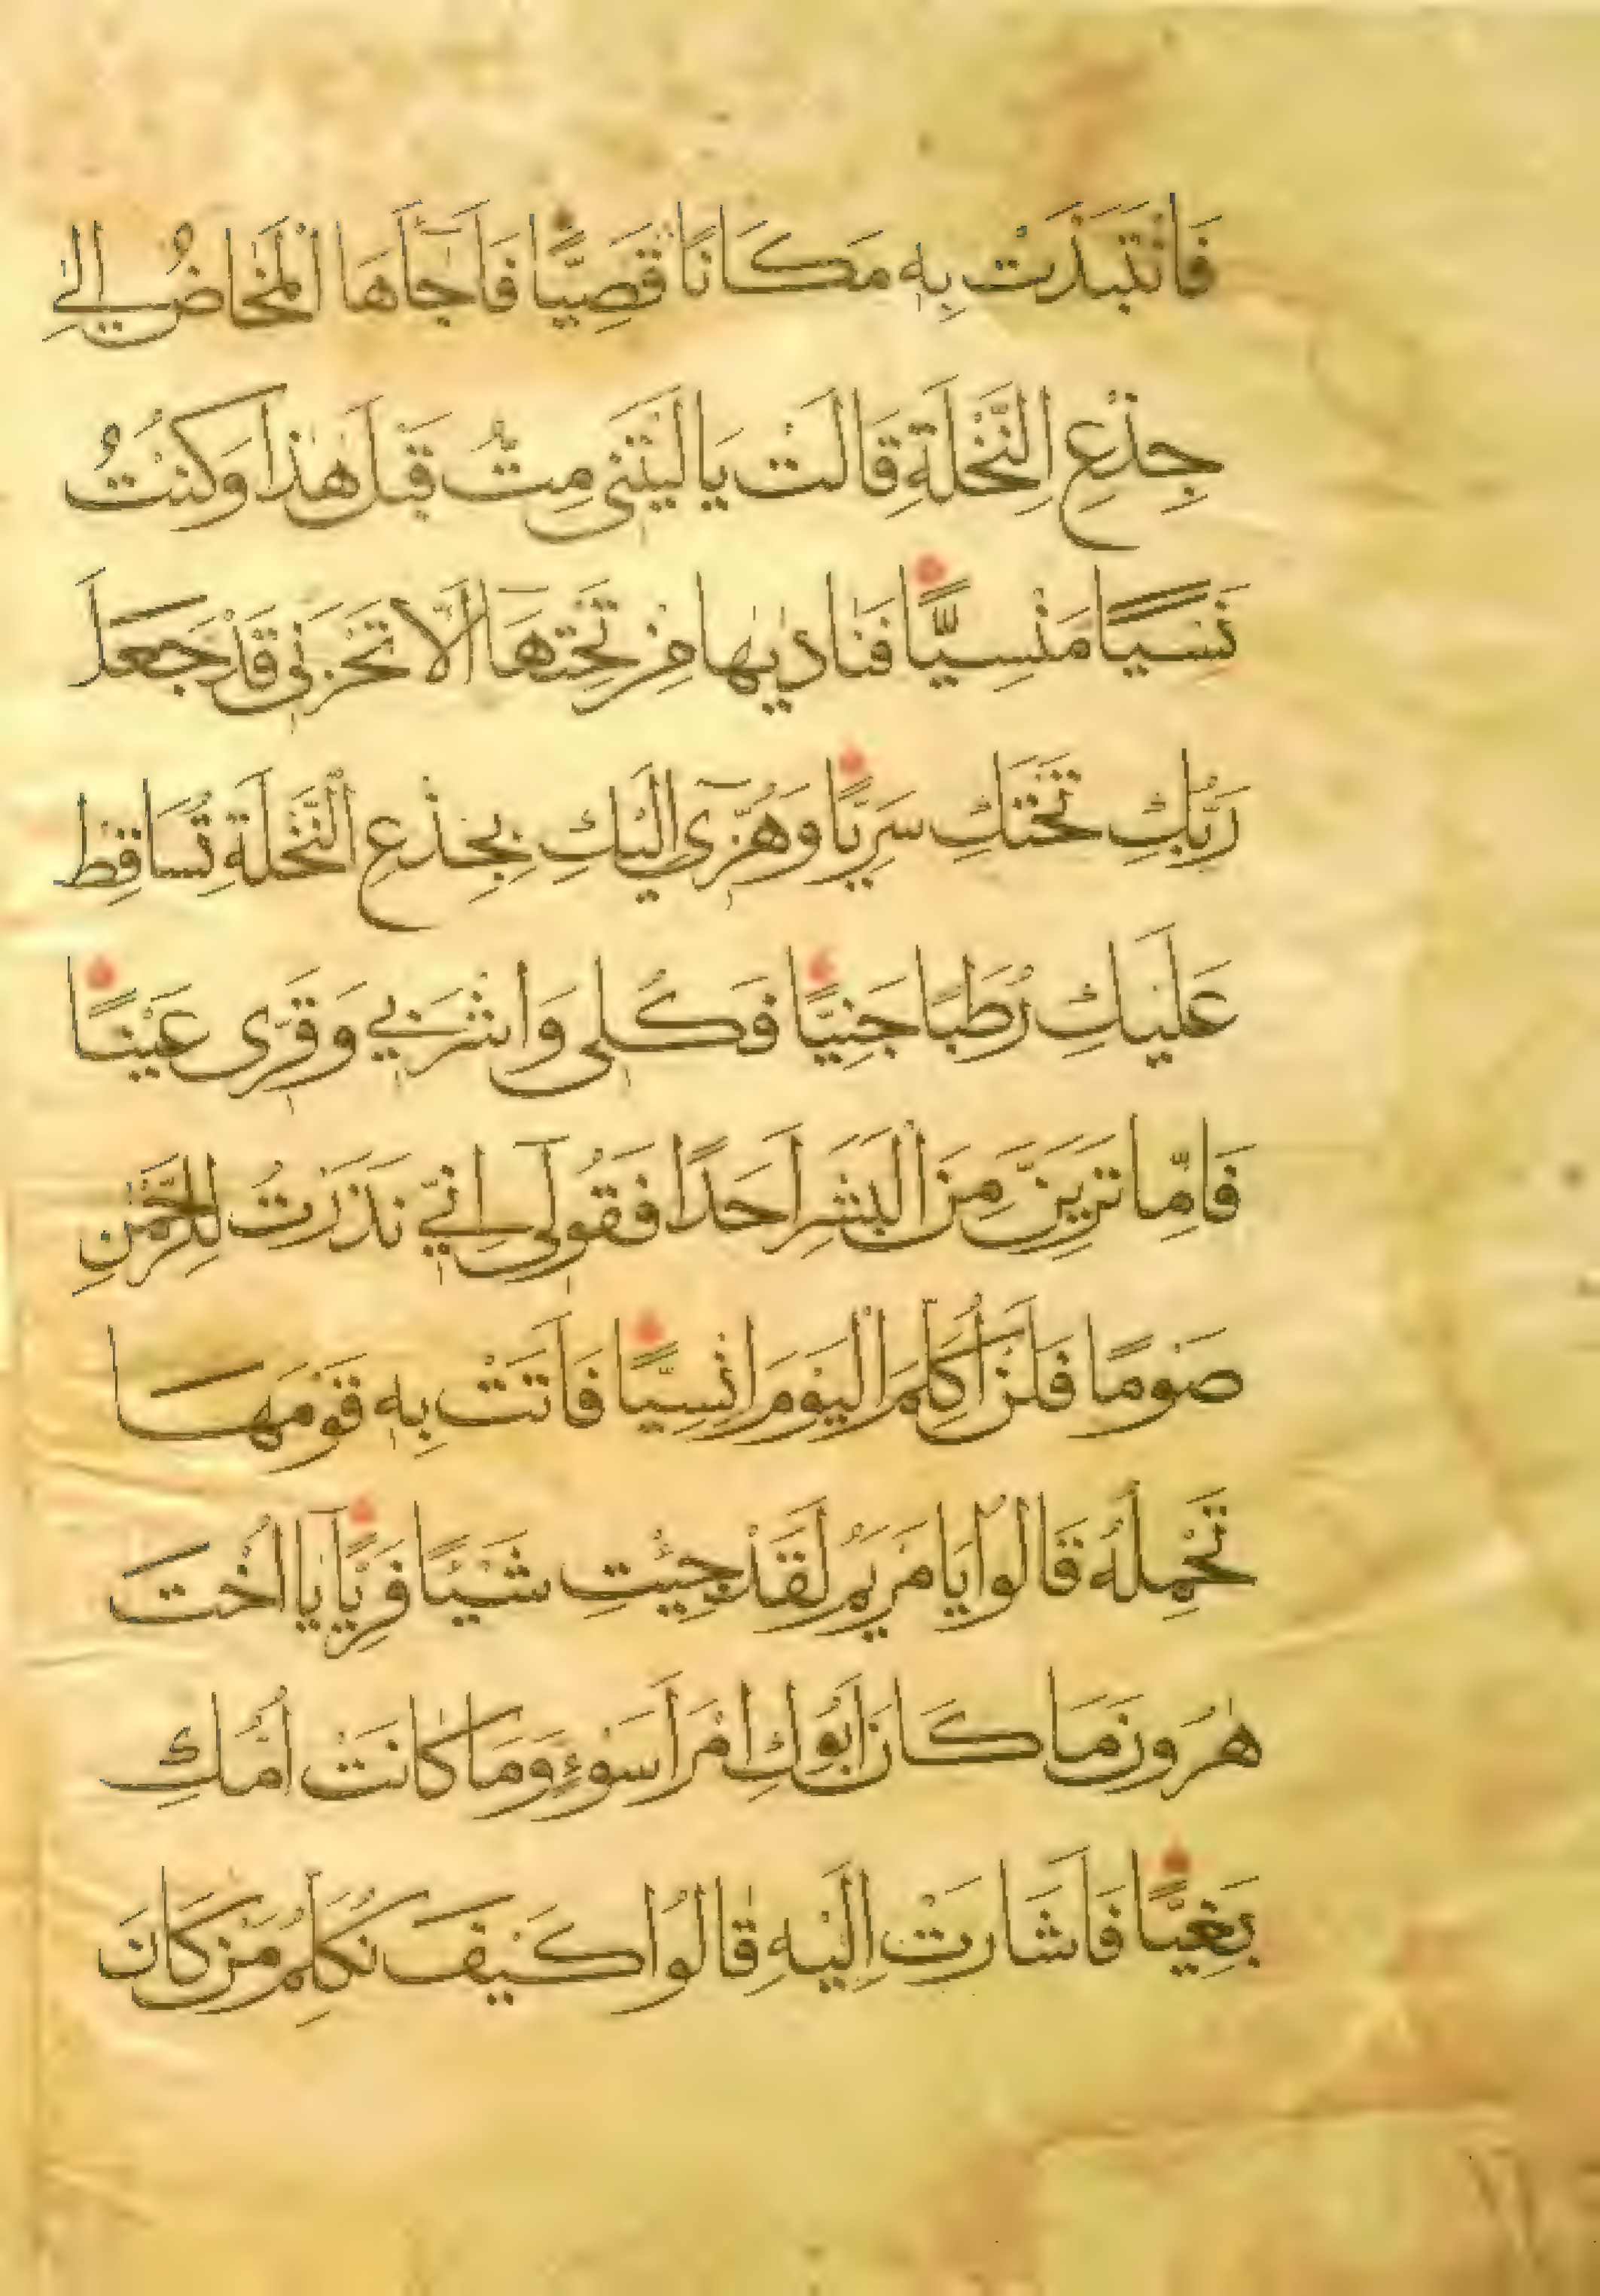 فَانْتَبَذَتْ بِهٖ مَكَانًا قَصِيًّا فَاَجَٓاءَهَا الْمَخَاضُ اِلٰى
جِذْعِ النَّخْلَةِ قَالَتْ يَا لَيْتَنٖى مِتُّ قَبْلَ هٰذَا وَكُنْتُ
نَسْيًا مَنْسِيًّا فَنَادٰيهَا مِنْ تَحْتِهَٓا اَلَّا تَحْزَنٖى قَدْ جَعَلَ
رَبُّكِ تَحْتَكِ سَرِيًّا وَهُزّٖٓى اِلَيْكِ بِجِذْعِ النَّخْلَةِ تُسَاقِطْ
عَلَيْكِ رُطَبًا جَنِيًّا فَكُلٖى وَاشْرَبٖى وَقَرّٖى عَيْنًا
فَاِمَّا تَرَيِنَّ مِنَ الْبَشَرِ اَحَدًا فَقُولٖٓى اِنّٖى نَذَرْتُ لِلرَّحْمٰنِ
صَوْمًا فَلَنْ اُكَلِّمَ الْيَوْمَ اِنْسِيًّا فَاَتَتْ بِهٖ قَوْمَهَا
تَحْمِلُهُ قَالُوا يَا مَرْيَمُ لَقَدْ جِئْتِ شَيْئًا فَرِيًّا يَٓا اُخْتَ
هٰرُونَ مَا كَانَ اَبُوكِ امْرَاَ سَوْءٍ وَمَا كَانَتْ اُمُّكِ
بَغِيًّا فَاَشَارَتْ اِلَيْهِ قَالُوا كَيْفَ نُكَلِّمُ مَنْ كَانَ